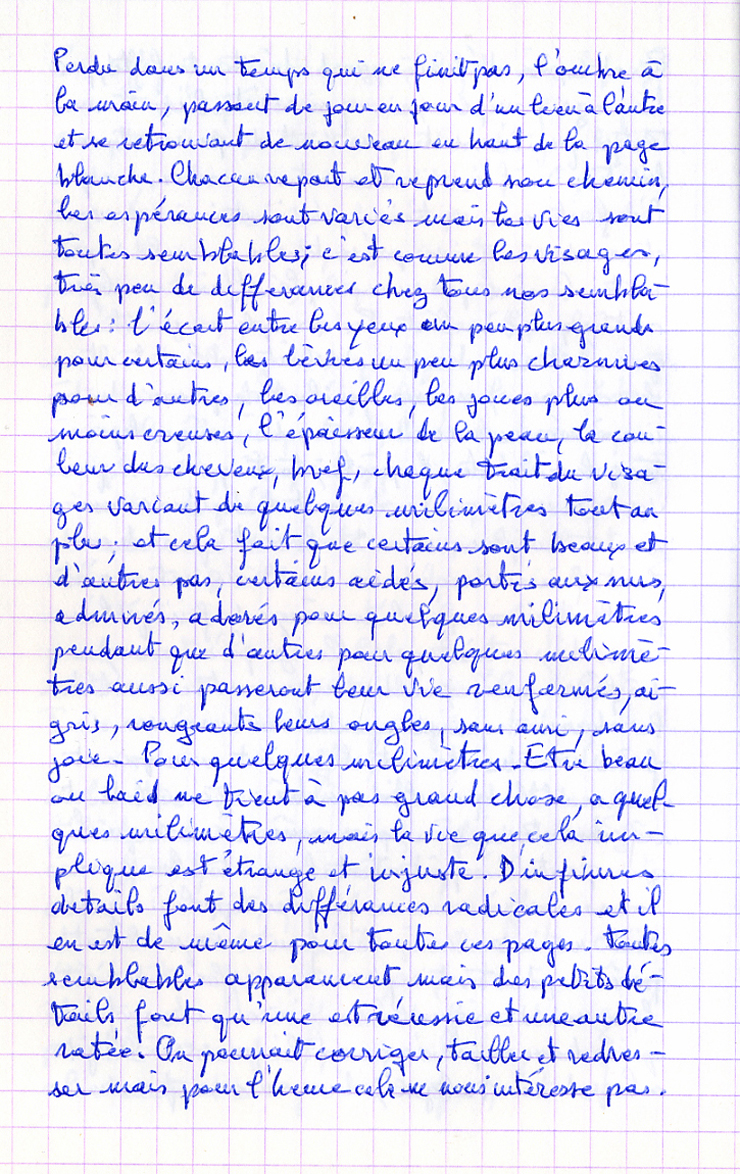 Perdu dans un temps qui ne finit pas, l'ombre à
la main, passant de jour en jour d'un lieu à l'autre
et se retrouvant de nouveau en haut de la page
blanche. Chacun repart et reprend son chemin,
les espérances sont variés mais les vies sont
toutes semblables; c'est comme les visages,
très peu de differances chez tous nos sembla-
bles: l'écart entre les yeux un peu plus grands
pour certains, les lèvres un peu plus charnues
pour d'autres, les oreilles, les joues plus ou
moins creuses, l'épaisseur de la peau, la cou-
leur des cheveux, bref, chaque trait du visa-
ges variant de quelques milimètres tout au
plus; et cela fait que certains sont beaux et
d'autres pas, certains aidés, portés aux nues,
admirés, adorés pour quelques milimètres
pendant que d'autres pour quelques milimè-
tres aussi passeront leur vie renfermés, ai-
gris, rongeants leurs ongles, sans ami, sans
joie. Pour quelques milimètres. Etre beau
ou laid ne tient à pas grand chose, a quel-
ques milimètres, mais la vie que cela im-
plique est étrange et injuste. D'infimes
details font des différances radicales et il
en est de même pour toutes ces pages. Toutes
semblables apparament mais des petits dé-
tails font qu'une est réussie et une autre
ratée. On pourrait corriger, tailler et redres-
ser mais pour l'heure cela ne nous intéresse pas.